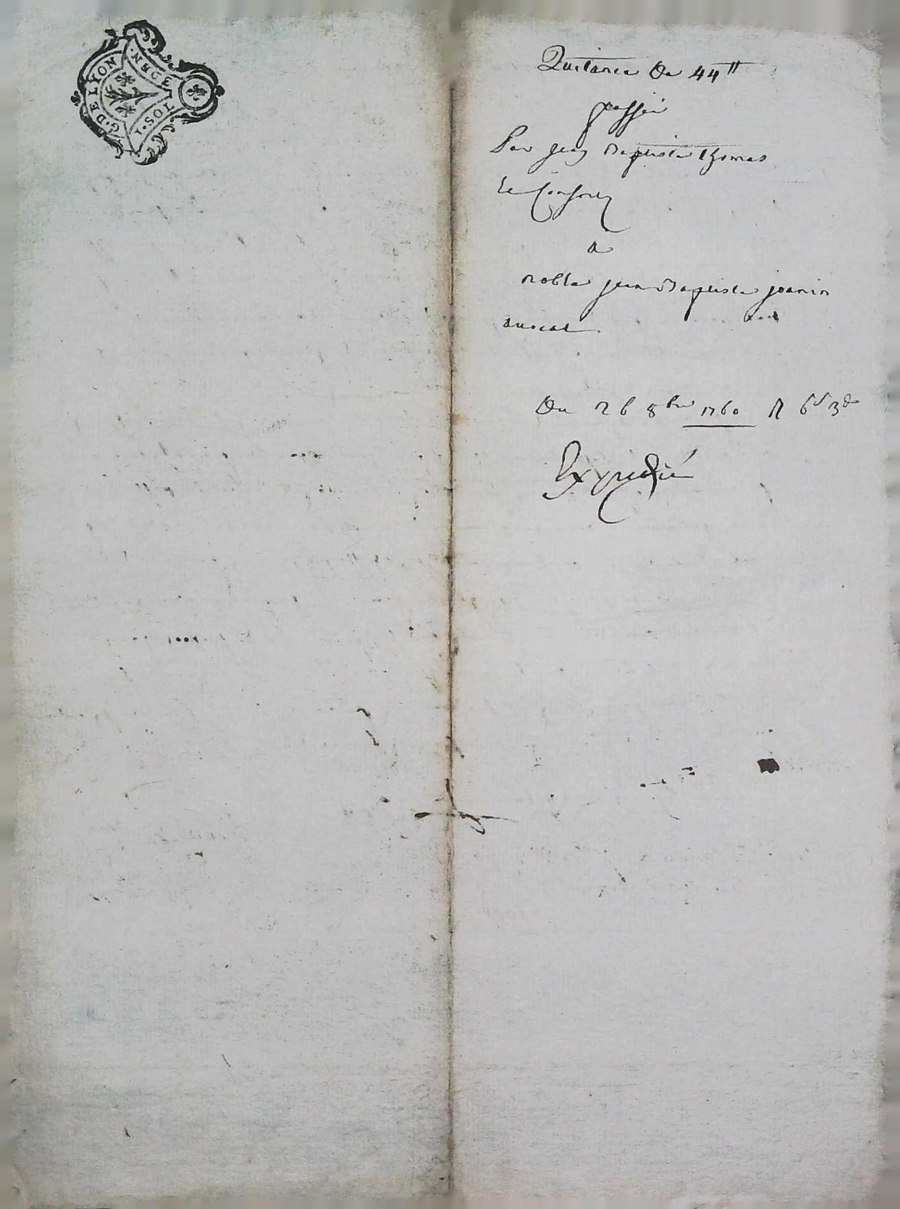 G. DE LYON
1. SOL. 4 DEN.
Quitance De 44ᵗᵗ
passée
Par jean Baptiste thomas
et Consors
a
noble jean Baptiste joanin
avocat.
Du 26 8bre 1760 R 6s 3d
Expedié